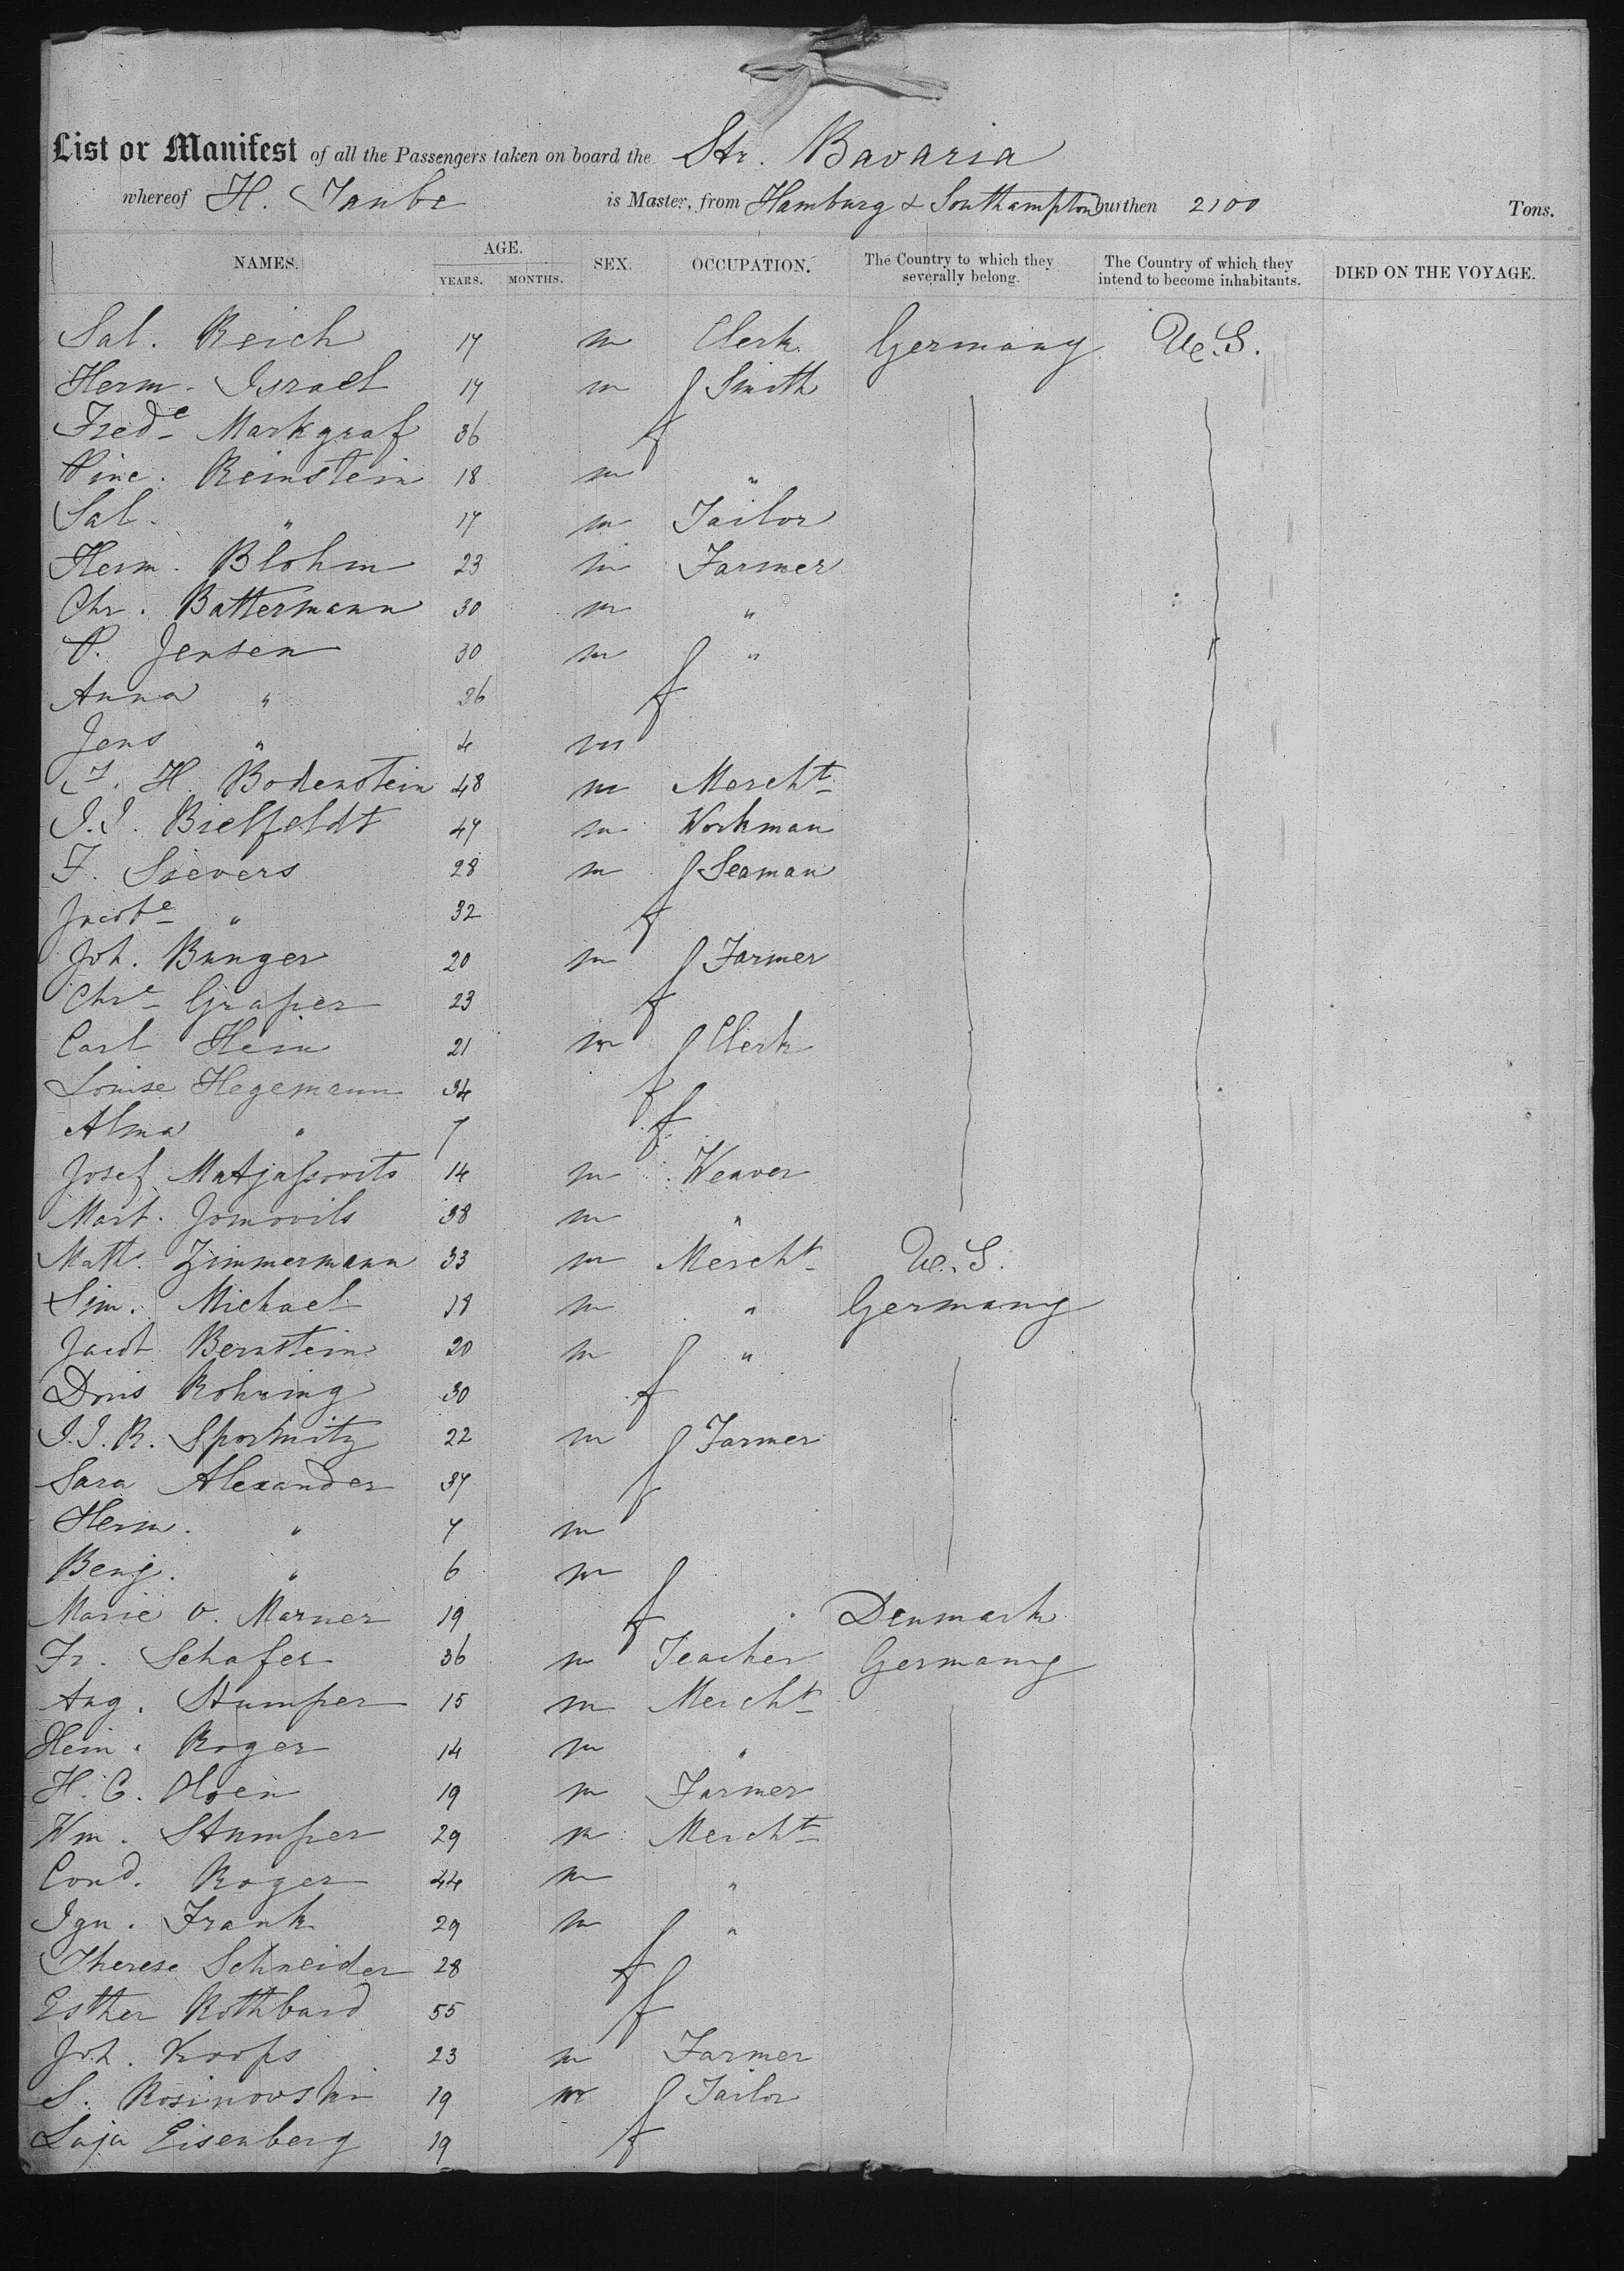 List or Manifest of all the Passengers taken on board the Str. Bavaria
whereof H. Taube is Master, from Hamburg & Southampton burthen 2100 Tons.
NAMES. AGE. SEX. OCCUPATION. The Country to which they severally belong. The Country of which they intend to become inhabitants. DIED ON THE VOYAGE.
YEARS. MONTHS.
Sal. Reich 17 m Clerk Germany U.S.
Herm. Israel 17 m Smith
Fredᵉ Markgraf 36 f
Pinc. Reinstein 18 m "
Sal. " 17 m Tailor
Herm. Blohm 23 m Farmer
Chr. Battermann 30 m "
P. Jensen 30 m "
Anna " 26 f
Jens " 4 m
F. H. Bodenstein 48 m Mercht
J.J. Bielfeldt 47 m Workman
F. Sievers 28 m Seaman
Jacobe " 32 f
Joh. Bunger 20 m Farmer
Chre Graper 23 f
Carl Hein 21 m Clerk
Louise Hegemann 34 f
Alma " 7 f
Josef Matjassovits 14 m Weaver
Mart. Jomovits 38 m "
Math. Zimmermann 33 m Mercht U.S.
Sim. Michael 18 m " Germany
Jacob Bernstein 20 m "
Doris Rohning 30 f
J.J.R. Sporknitz 22 m Farmer
Sara Alexander 37 f
Herm. " 7 m
Benj. " 6 m
Marie v. Marner 19 f Denmark
Fr. Schafer 36 m Teacher Germany
Aug. Stumper 15 m Mercht
Hein. Roger 14 m "
H. C. Olsen 19 m Farmer
Wm. Stumper 29 m Mercht
Cond. Roger 44 m "
Ign. Frank 29 m "
Therese Schneider 28 f
Esther Rothbard 55 f
Joh. Koops 23 m Farmer
S. Rosinowski 19 m Tailor
Laja Eisenberg 19 f